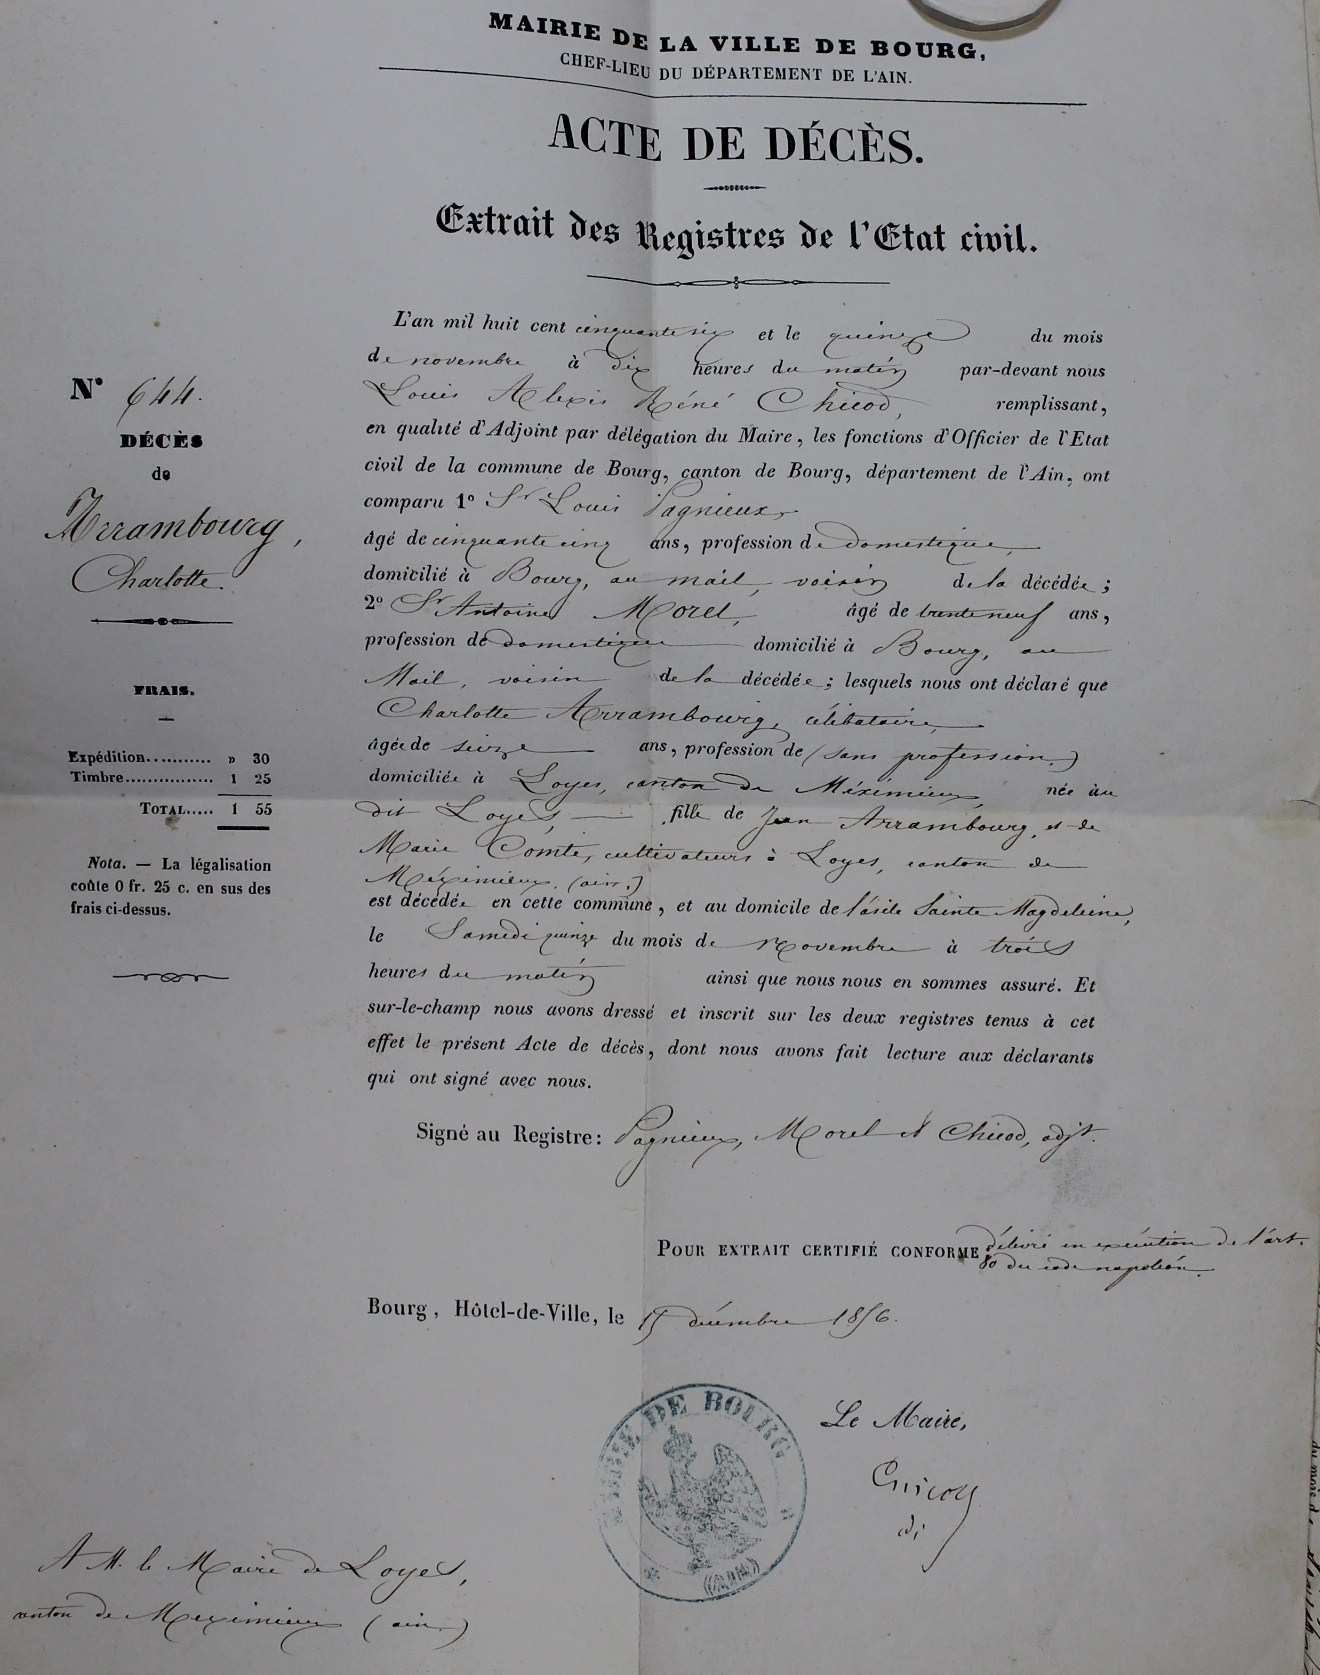 MAIRIE DE LA VILLE DE BOURG,
CHEF-LIEU DU DÉPARTEMENT DE L'AIN.
ACTE DE DÉCÈS.
Extrait des Registres de l'Etat civil.
N° 644.
DÉCÈS
de
Arrambourg,
Charlotte.
FRAIS.
Expédition........... » 30
Timbre................ 1 25
TOTAL..... 1 55
Nota. — La légalisation
coûte 0 fr. 25 c. en sus des
frais ci-dessus.
L'an mil huit cent cinquante six et le quinze du mois
de novembre à dix heures du matin par-devant nous
Louis Alexis Réné Chicod, remplissant,
en qualité d'Adjoint par délégation du Maire, les fonctions d'Officier de l'Etat
civil de la commune de Bourg, canton de Bourg, département de l'Ain, ont
comparu 1° Sr Louis Pagnieux,
âgé de cinquante cinq ans, profession de domestique,
domicilié à Bourg, au mail, voisin de la décédée;
2° Sr Antoine Morel, âgé de trente neuf ans,
profession de domestique domicilié à Bourg, au
Mail, voisin de la décédée; lesquels nous ont déclaré que
Charlotte Arrambourg, célibataire,
âgée de seize ans, profession de (sans profession.)
domiciliée à Loyes, canton de Méximieux, née au
dit Loyes, fille de Jean Arrambourg, et de
Marie Comte, cultivateurs à Loyes, canton de
Méximieux. (ain.)
est décédée en cette commune, et au domicile de l'asile Sainte Magdeleine,
le Samedi quinze du mois de Novembre à trois
heures du matin ainsi que nous nous en sommes assuré. Et
sur-le-champ nous avons dressé et inscrit sur les deux registres tenus à cet
effet le présent Acte de décès, dont nous avons fait lecture aux déclarants
qui ont signé avec nous.
Signé au Registre: Pagnieux, Morel et Chicod, adjt.
POUR EXTRAIT CERTIFIÉ CONFORME délivré en exécution de l'art.
80 du code napoléon.
Bourg, Hôtel-de-Ville, le 15 décembre 1856.
MAIRIE DE BOURG
(AIN)
Le Maire,
Chicod
A M. le Maire de Loyes,
canton de Meximieux (ain.)